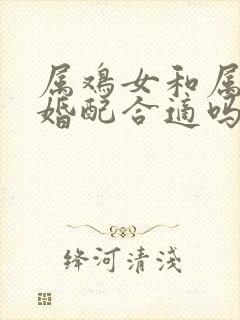 属鸡女和属
婚配合适吗
绛河清浅